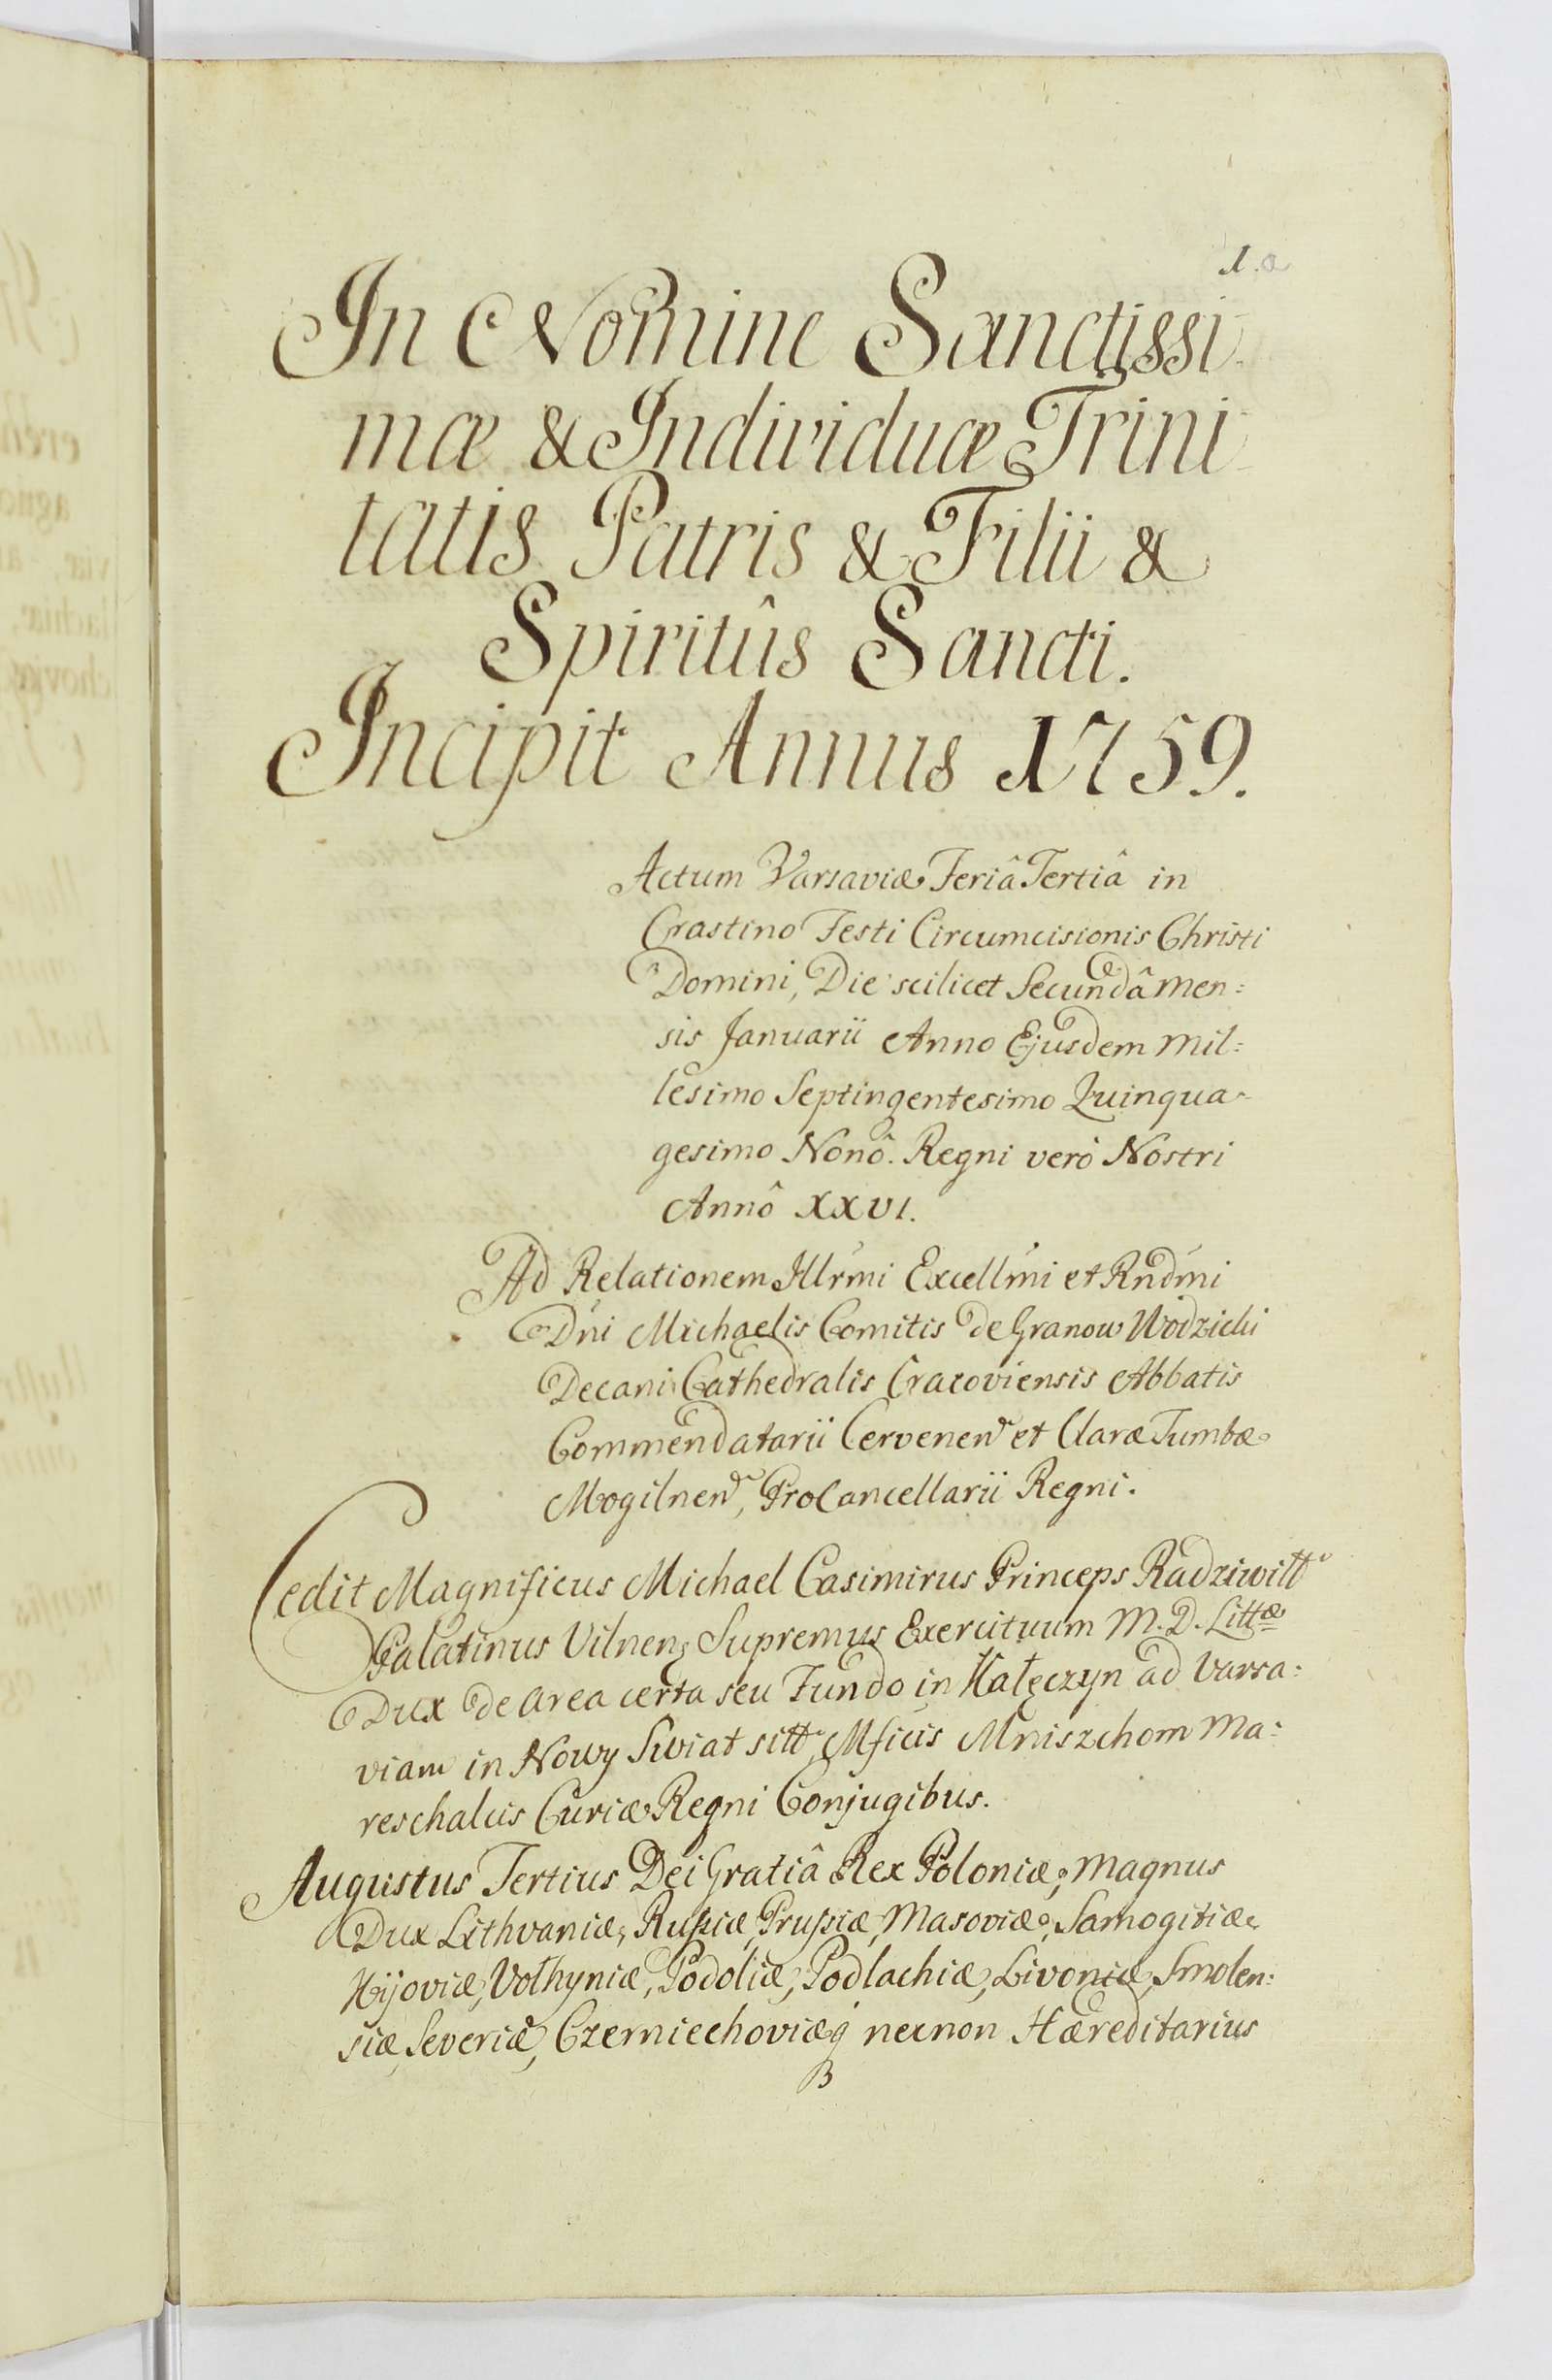 1.a
In Nomine Sanctissi-
mæ & Individuæ Trini-
tatis Patris & Filii &
Spiritûs Sancti.
Incipit Annus 1759.
Actum Varsaviæ Feriâ Tertiâ in
Crastino Festi Circumcisionis Christi
Domini, Die scilicet Secundâ Men:
sis Januarii Anno Ejusdem Mil:
lesimo Septingentesimo Quinqua-
gesimo Nonô. Regni verò Nostri
Annô XXVI.
Ad Relationem Illrmi Excellmi et Rndmi
Dni Michaelis Comitis de Granow Wodzicki
Decani Cathedralis Cracoviensis Abbatis
Commendatarii Cervenen et Claræ Tumbæ
Mogilnen, ProCancellarii Regni.
Cedit Magnificus Michael Casimirus Princeps Radziwitt
Palatinus Vilnen; Supremus Exercituum M. D. Littæ
Dux de Area certa seu Fundo in Kałęczyn ad Varsa:
viam in Nowy Swiat sitt. Mficis Mniszchom Ma:
reschalcis Curiæ Regni Conjugibus.
Augustus Tertius Dei Gratiâ Rex Poloniæ, Magnus
Dux Lithvaniæ, Rußiæ, Prußiæ, Masoviæ, Samogitiæ,
Kijoviæ, Volhyniæ, Podoliæ, Podlachiæ, Livoniæ, Smolen:
siæ, Severiæ, Czerniechoviæq necnon Hæreditarius
B